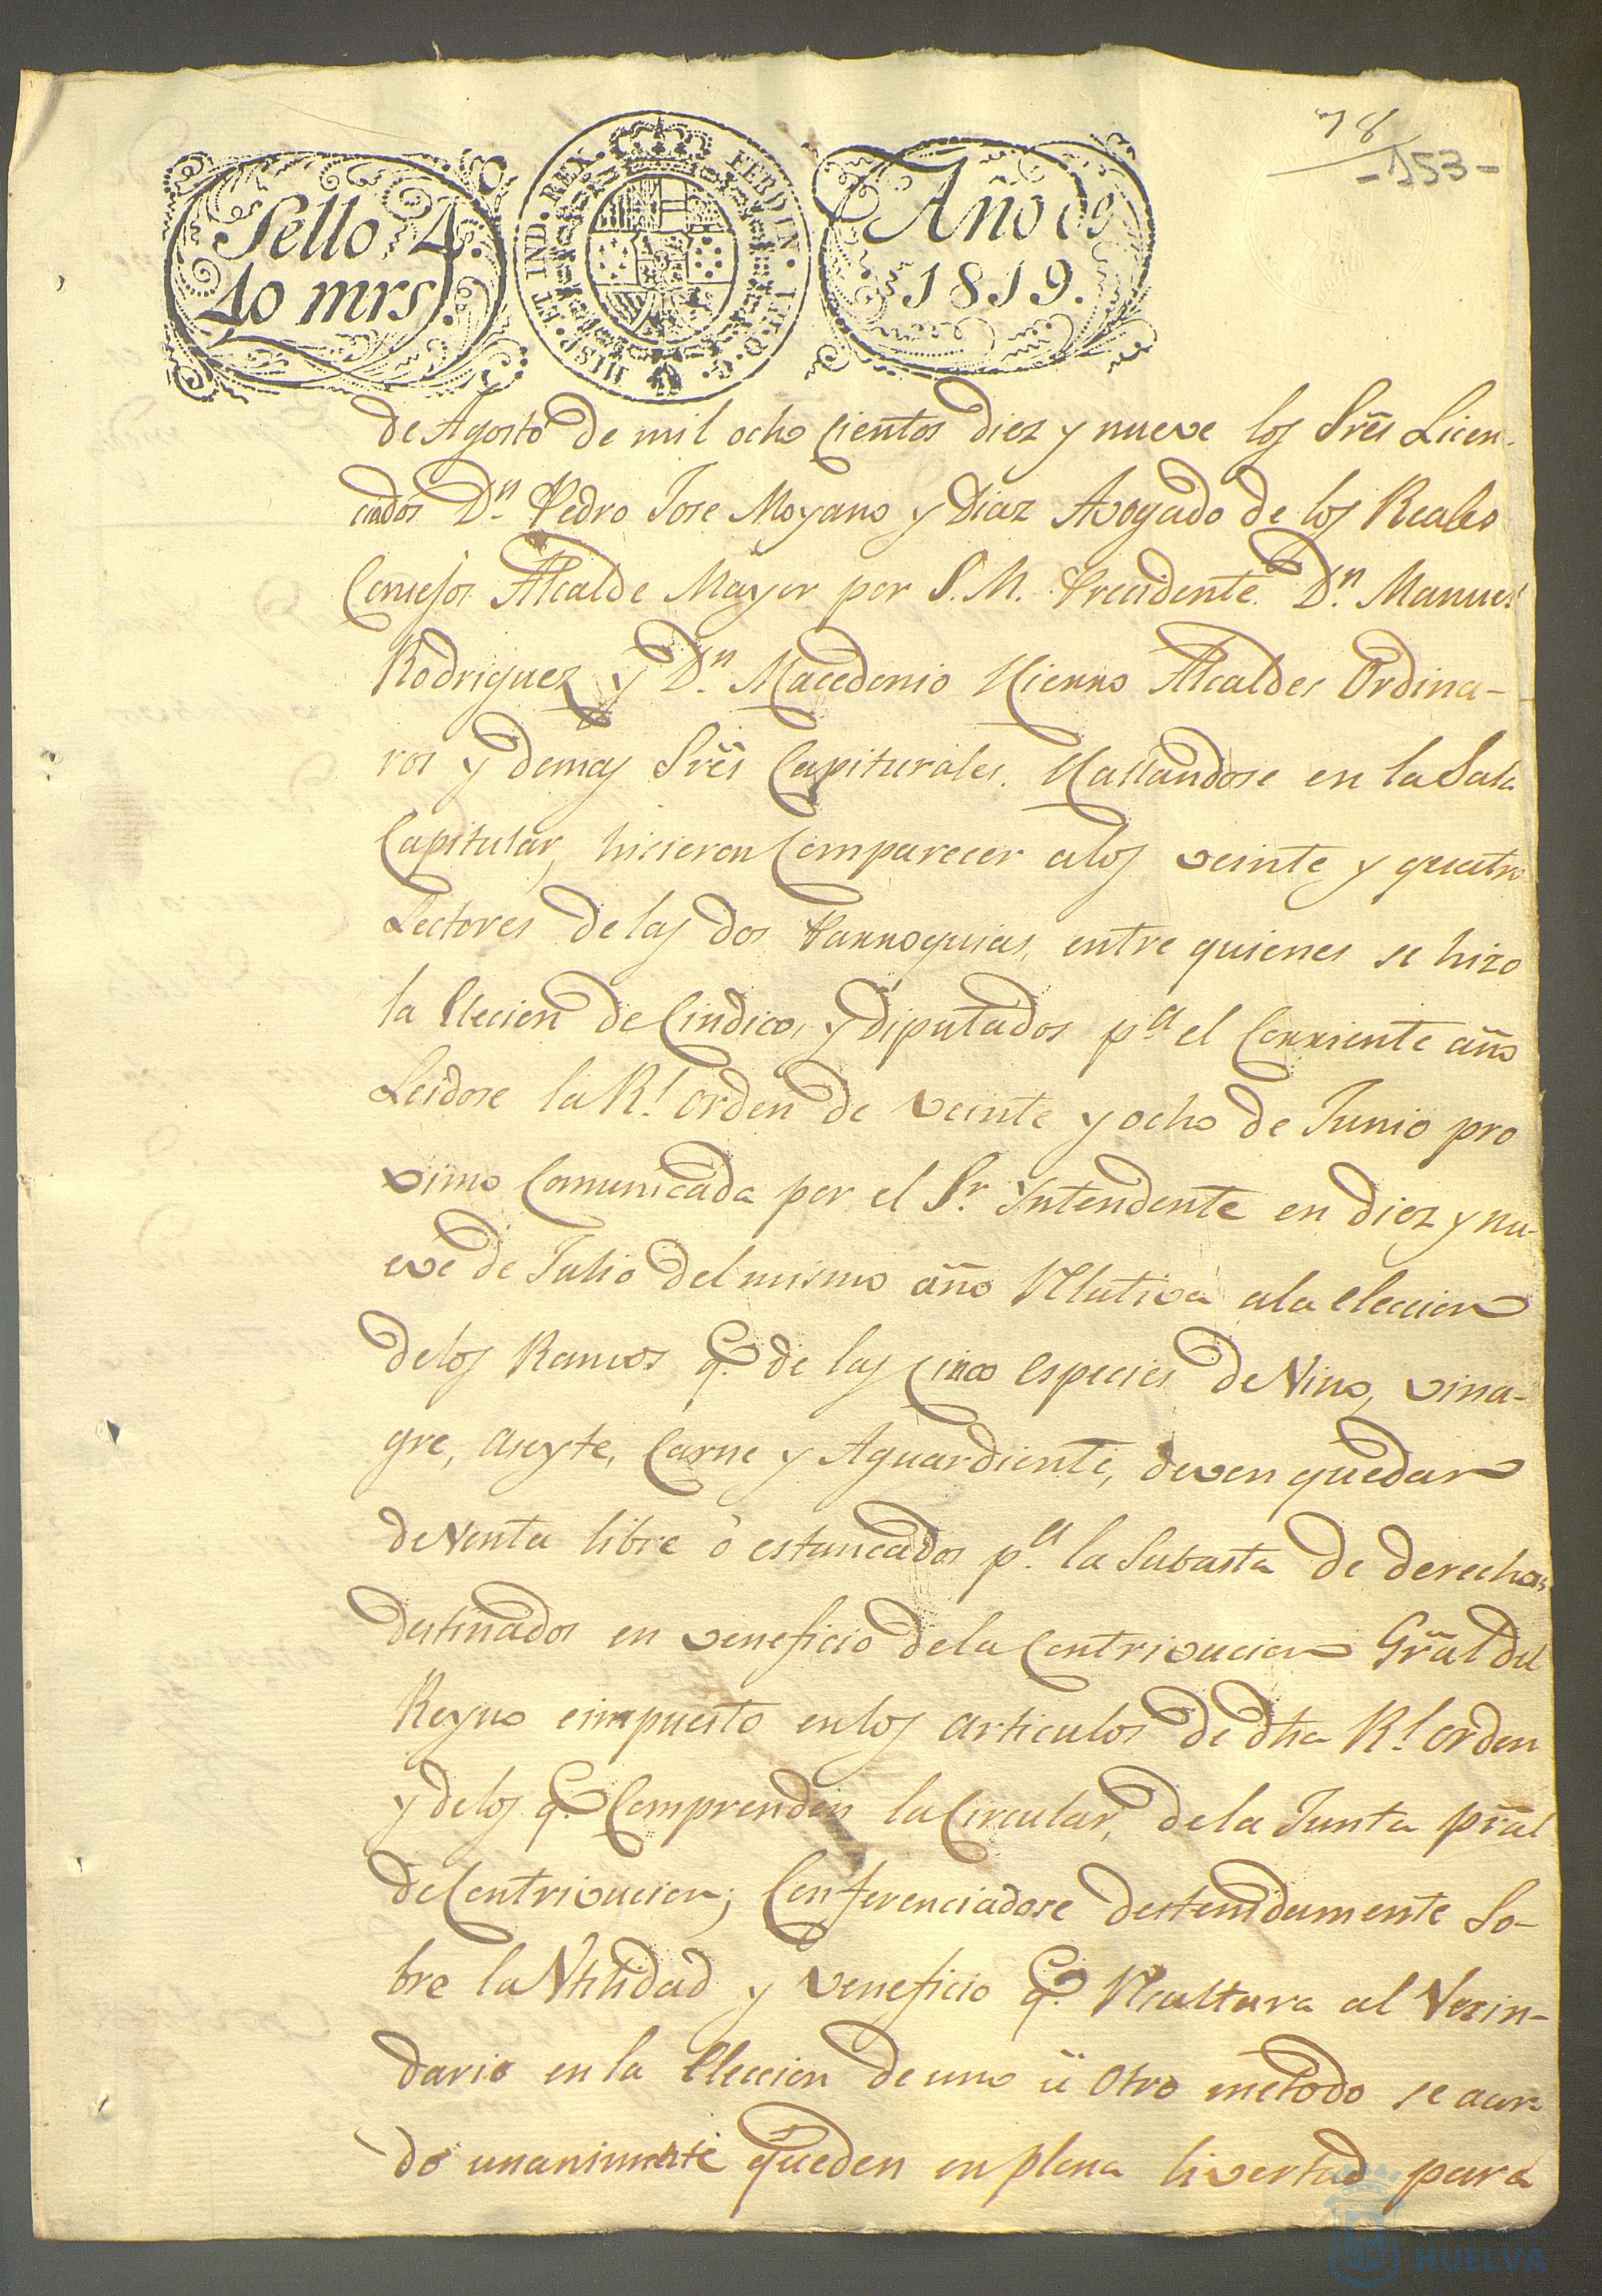 78
-153-
Sello 4º.
40 mrs.
HISP. ET IND. REX. FERDIN. VII. D. G.
Año de
1819.
de Agosto de mil ocho cientos diez y nueve los Srēs Licen-
ciados Dn. Pedro Jose Moyano y Diaz Avogado de los Reales
Consejos Alcalde Mayor por S. M. Precidente. Dn. Manuel
Rodriguez y Dn. Macedonio Hierro Alcaldes Ordina-
ros y demas Srēs Capiturales. Hallandose en la Sala
Capitular, hicieron Comparecer alos veinte y quatro
Lectores de las dos Parroquias, entre quienes se hizo
la Elecion de Cindico, y diputados pa. el Corriente año
Leidose la Rl. orden de veinte y ocho de Junio pro
ximo Comunicada por el Sr. Yntendente en diez y nu-
eve de Julio del mismo año Relativa ala eleccion
delos Ramos q. de las Cinco especies de Vino, vina-
gre, aseyte, Carne y Aguardiente, deven quedar
de Venta libre ó estancados pa. la Subasta de derechos
destinados en veneficio dela Contrivucion Grāl del
Reyno eimpuesto enlos articulos de dha Rl. orden
y delos q. Comprenden la Circular, dela Junta prāl
de Contrivucion; Conferenciadose destenidamente So-
bre la Utilidad y veneficio q. Resultara al Vecin-
dario en la Eleccion de uno ü otro metodo se acor-
dó unanimnte queden en plena livertad para
HUELVA